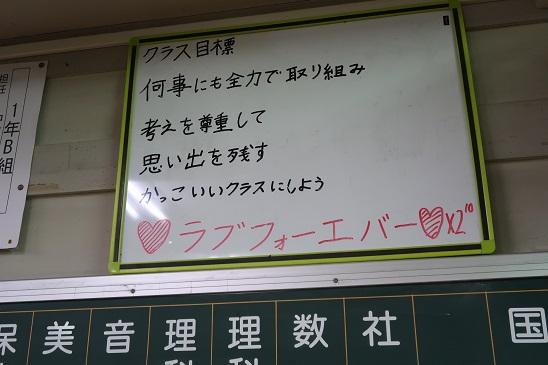 クラス目標
何事にも全力で取り組み
考えを尊重して
思い出を残す
かっこいいクラスにしよう
♡ラブフォーエバー♡x2"
担任
1年B組
保 美 音 理科 理科 数 社 国